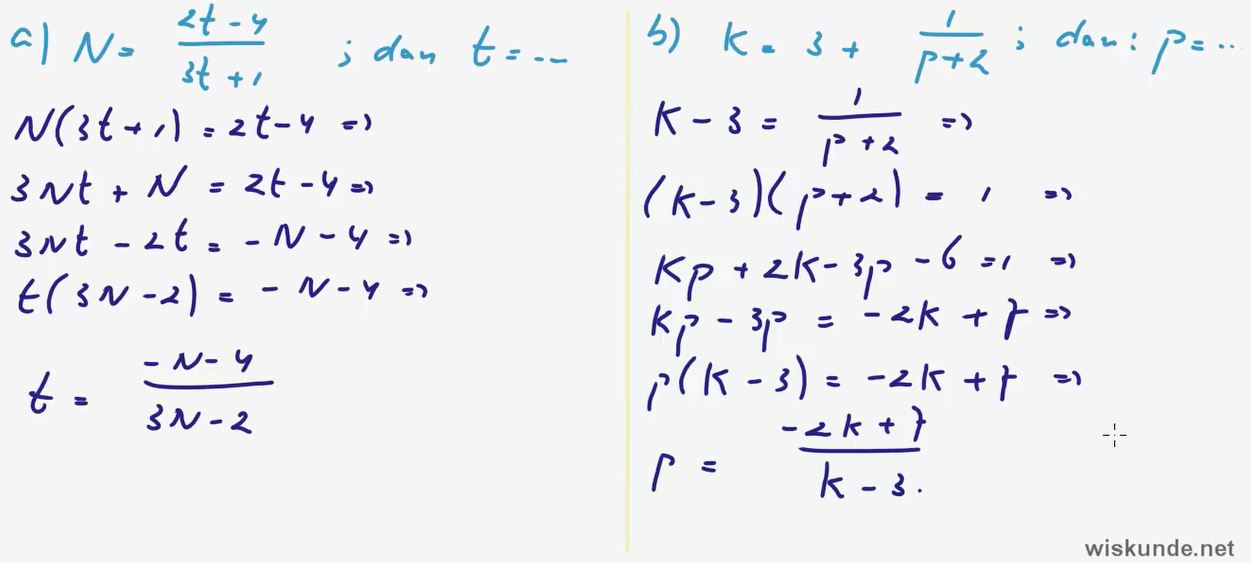 a) N = (2t - 4)/(3t + 1) ; dan t = ...
N(3t + 1) = 2t - 4 =>
3Nt + N = 2t - 4 =>
3Nt - 2t = - N - 4 =>
t(3N - 2) = - N - 4 =>
t = (- N - 4)/(3N - 2)
b) K = 3 + 1/(p + 2) ; dan: p = ...
K - 3 = 1/(p + 2) =>
(K - 3)(p + 2) = 1 =>
Kp + 2K - 3p - 6 = 1 =>
Kp - 3p = - 2K + 7 =>
p(K - 3) = - 2K + 7 =>
p = (- 2K + 7)/(K - 3).
wiskunde.net